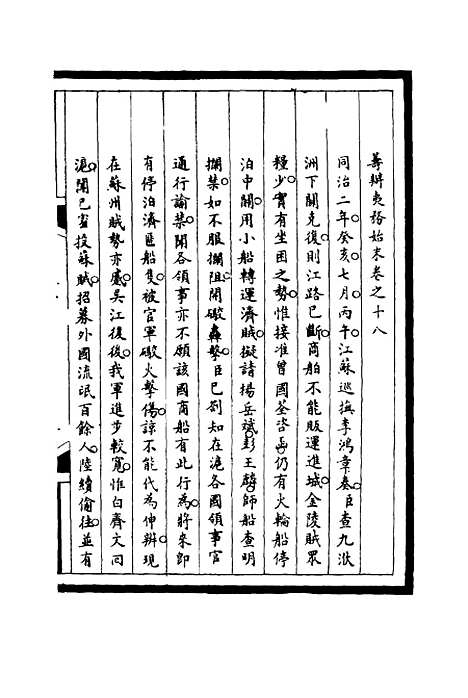 籌辦夷務始末卷之十八
同治二年癸亥七月丙午江蘇巡撫李鴻章奏臣查九洑
洲下關克復則江路已斷商舶不能販運進城金陵賊眾
糧少實有坐困之勢惟接准曾國荃咨函仍有火輪船停
泊中關用小船轉運濟賊擬請揚岳斌彭玉麟師船查明
攔禁如不服攔阻開礮轟擊臣已劄知在滬各國領事官
通行諭禁開各領事亦不願該國商船有此行為將來即
有停泊濟匪船隻被官軍礮火擊傷諒不能代為伸辨現
在蘇州賊勢亦感吳江復後我軍進步較寬惟白齊文回
滬開已密投蘇賊招募外國流氓百餘人陸續偷往並有